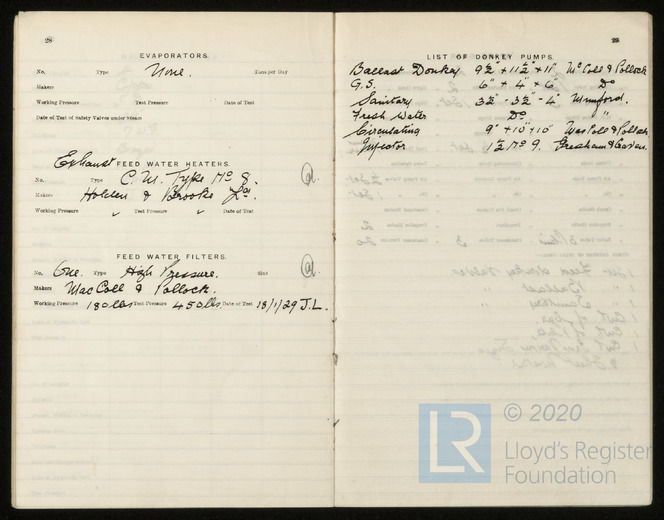 28
EVAPORATORS.
No. Type None. Tons per Day
Makers
Working Pressure Test Pressure Date of Test
Date of Test of Safety Valves under steam
Exhaust FEED WATER HEATERS.
No. Type C. W. Type No 8.
Makers Holden & Brooke Ld.
Working Pressure " Test Pressure " Date of Test
FEED WATER FILTERS.
No. One. Type High Pressure. Size
Makers MacColl & Pollock.
Working Pressure 180 lbs Test Pressure 450 lbs. Date of Test 18/1/29 J.L.
LIST OF DONKEY PUMPS.
Ballast Donkey 9½" + 11½" + 11" McColl & Pollock
G.S. 6" + 4" + 6" Do
Sanitary 3½" - 3½" - 4" Mumford.
Fresh Water Do "
Circulating 9" + 10" + 10" MacColl & Pollock
Injector 1½ No 9.
© 2020
LR
Lloyd's Register
Foundation